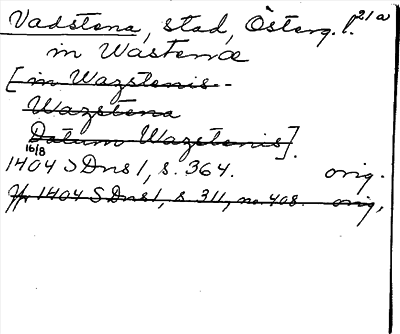 Vadstena, stad, Österg. l. 21a
in Wastenæ
[in Wazstenis -
Wazstena
Datum Wazstenis].
16/8
1404 SDns 1, s. 364. orig.
Jfr 1404 SDns 1, s. 311, no 408. orig.